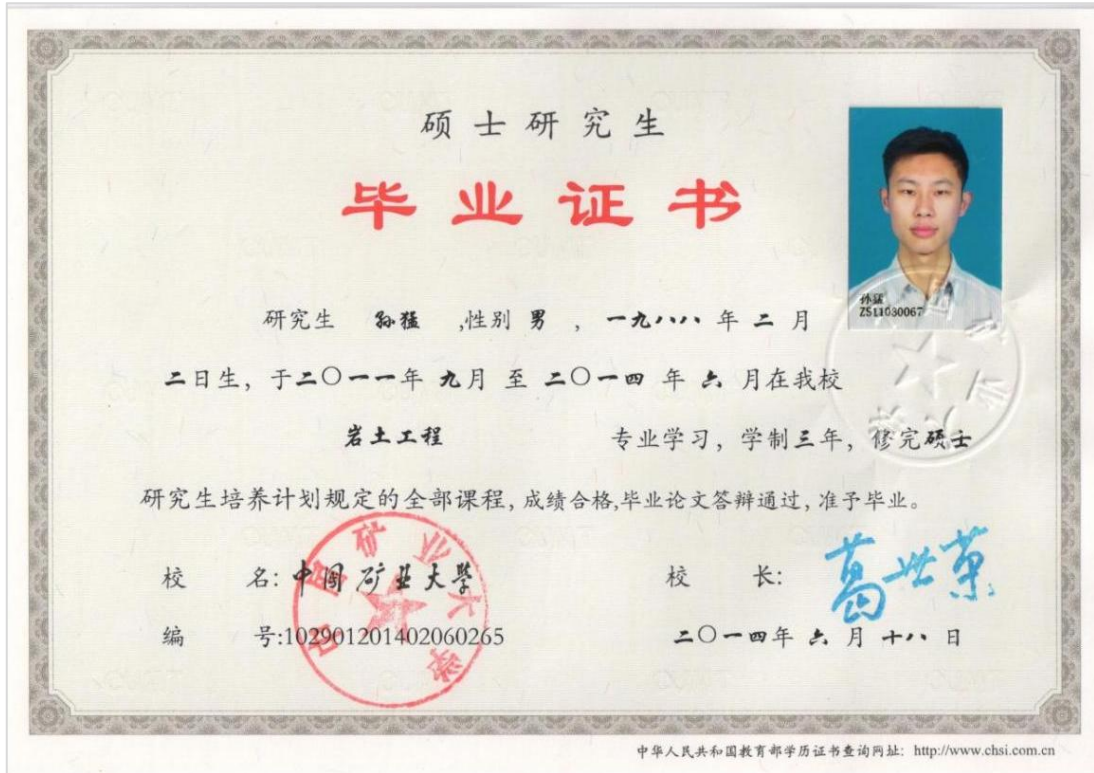 硕士研究生
毕业证书
孙猛
ZS11030067
研究生 孙猛 ,性别 男 , 一九八八 年 二 月
二日生, 于二〇一一年 九月 至 二〇一四 年 六 月在我校
岩土工程 专业学习, 学制三年, 修完硕士
研究生培养计划规定的全部课程, 成绩合格,毕业论文答辩通过, 准予毕业。
校 名: 中国矿业大学
校 长: 葛世荣
中国矿业大学
编 号:102901201402060265
二〇一四年 六 月 十八 日
中华人民共和国教育部学历证书查询网址: http://www.chsi.com.cn